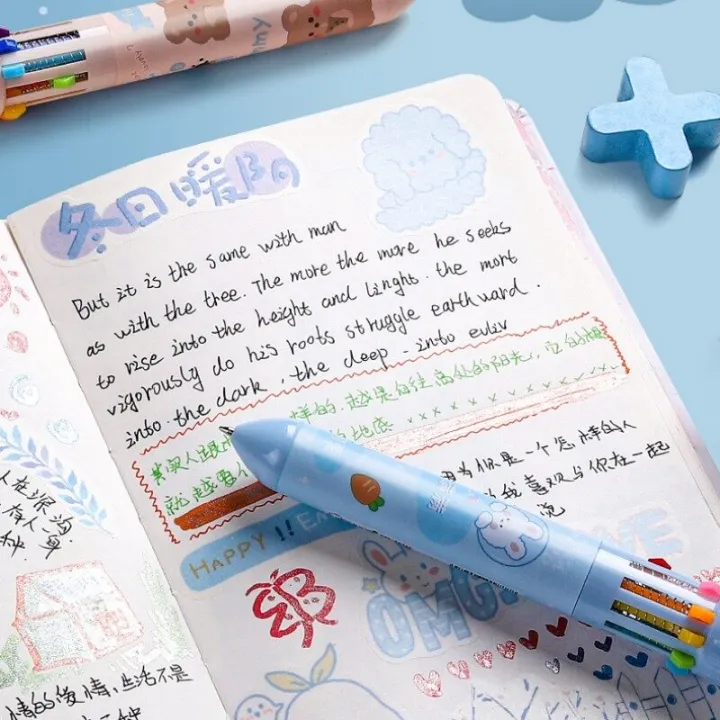 冬日暖阳
But it is the same with man
as with the tree. The more the more he seeks
to rise into the height and Linght. the mort
vigorously do his roots struggle earthward.
into the dark, the deep - into euliv
其实人跟 样的,越是向往高处的阳光,它的根
就越要 的地底
因为你是一个怎样的人
我喜欢与你在一起
HAPPY !!
OMG
人在深沟
有人
情的俊情,生活不是